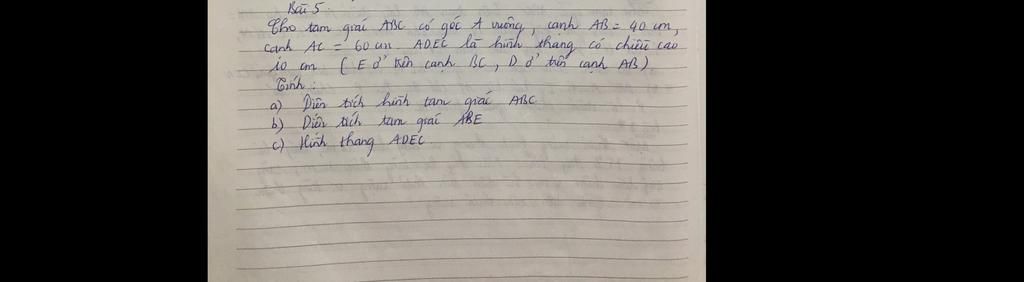 Bài 5
Cho tam giác ABC có góc A vuông, cạnh AB = 40 cm,
cạnh AC = 60 cm. ADEC là hình thang có chiều cao
10 cm ( E ở trên cạnh BC, D ở trên cạnh AB)
Tính:
a) Diện tích hình tam giác ABC
b) Diện tích tam giác ABE
c) Hình thang ADEC